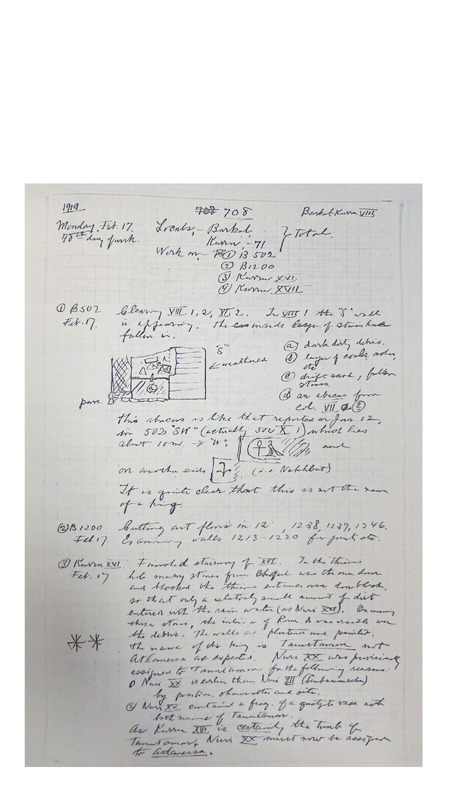 1919 708 708 Barkal-Kurru VIII
Monday, Feb. 17. Locals, - Barkal,
48th day of work. Kurru, - 71 } Total.
Work on, - ① B 502
② B1200
③ Kurru XVI
④ Kurru XVII
① B502 Clearing VIII 1, 2, VI 2. In VIII 1 the "S" wall
Feb. 17 is appearing. the
fallen in.
ⓐ dark dirty debris.
"S" ⓑ layer of coals, ashes,
← weathered etc
ⓒ drift sand, fallen
stones
pave ⓓ an abacus from
col. VII
This abacus is like that reported on Jan. 12,
in 502 "SW" (actually 502 X 1) which lies
about 10 m. → "W", and
on another side (i.e. Nekhbet)
It is quite clear that this is not the name
of a king
② B1200 Cutting out floors in 12 , 1238, 1239, 1246.
Feb. 17. Examining walls 1213-1220 for joints etc.
③ Kurru XVI Finished stairway of XVI. In the thieves
Feb. 17 hole many stones from Chapel
and blocked the thieves entrance
so that only a relatively small amount of dirt
entered with the rain water (as Nuri ). On
these stones, the interior of Room A was visible over
the debris. The walls are plastered and painted.
the name of the king is Tanutamon not
Atlanersa as expected. Nuri XX was provisionally
assigned to Tanutamon for the following reasons:
① Nuri XX is earlier than Nuri
by position, and site.
② Nuri XX contained a frag. of a quartzite vase with
both names of Tanutamon.
As Kurru XVI is certainly the tomb of
Tanutamon, Nuri XX must now be assigned
to Atlanersa.